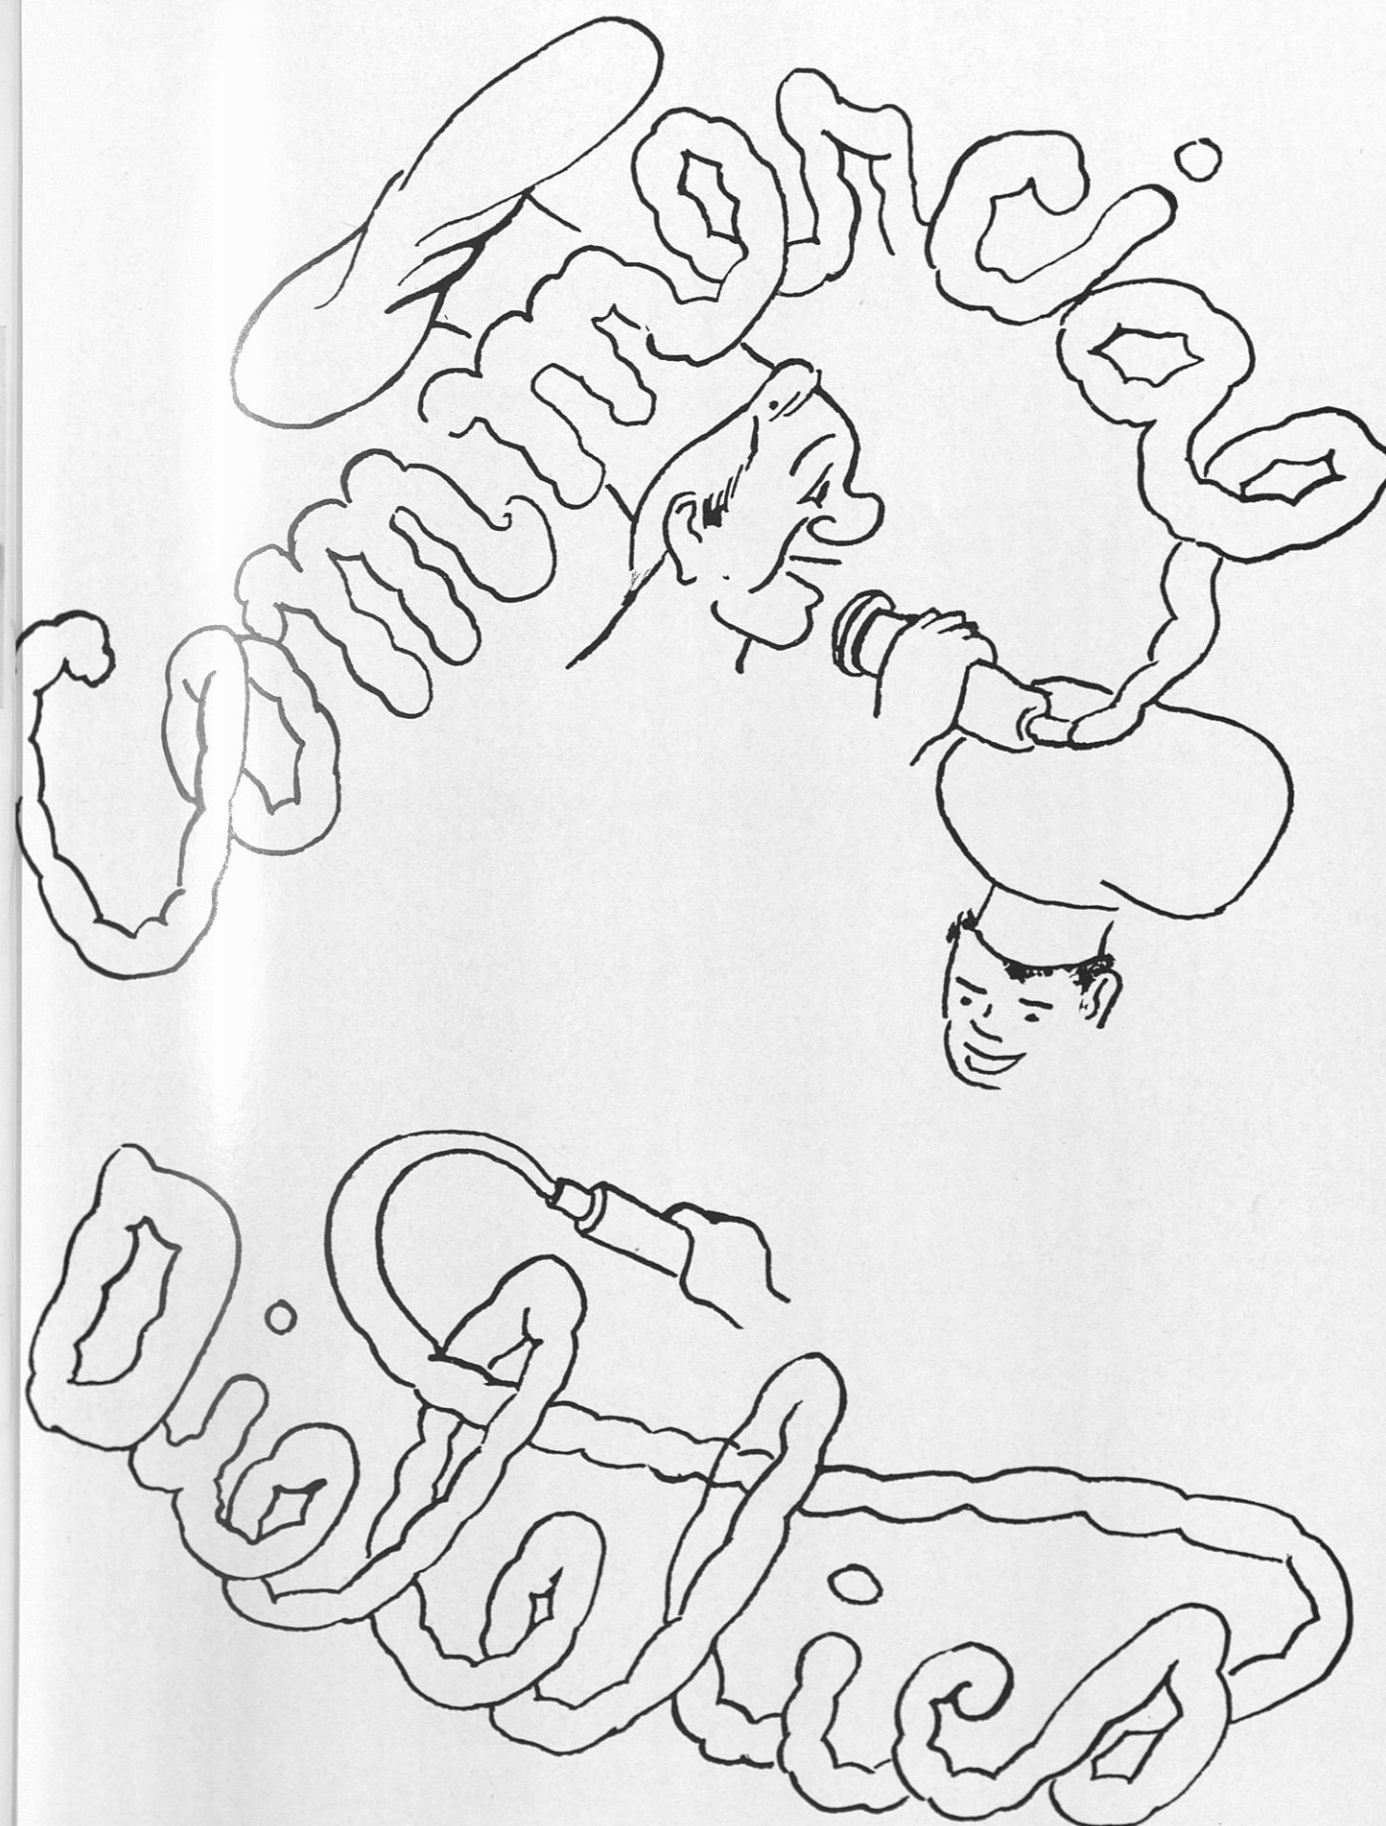 Commercial
Dietetics